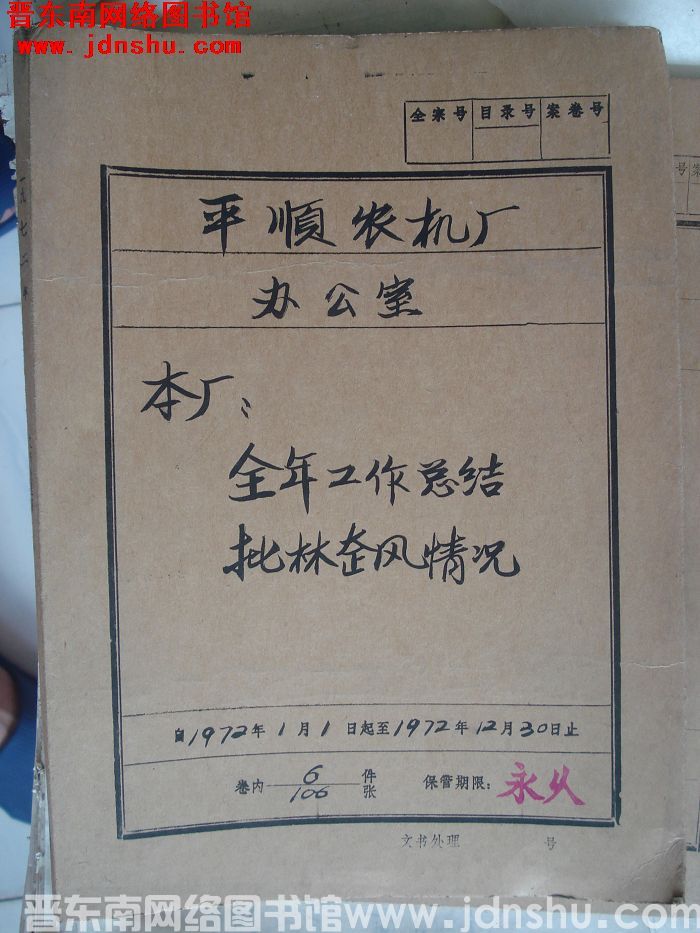 晋东南网络图书馆
www.jdnshu.com
全宗号 目录号 案卷号
平順农机厂
办公室
本厂:
全年工作总结
批林整风情况
自1972年1月1日起至1972年12月30日止
卷内 6 件
106 张
保管期限: 永久
文书处理 号
晋东南网络图书馆 www.jdnshu.com